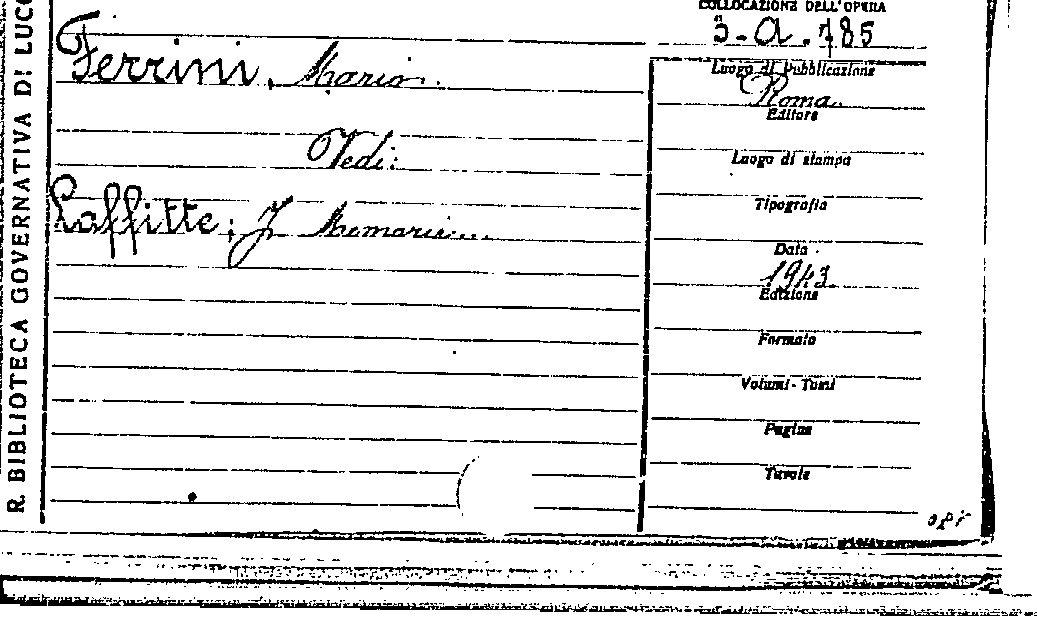 R. BIBLIOTECA GOVERNATIVA DI LUCC
COLLOCAZIONE DELL'OPERA
3-a.785
Ferrini, Mario.
Vedi:
Laffitte, J
Luogo di Pubblicazione
Roma
Editore
Luogo di stampa
Tipografia
Data
1943.
Edizione
Formato
Volumi - Tomi
Pagine
Tavole